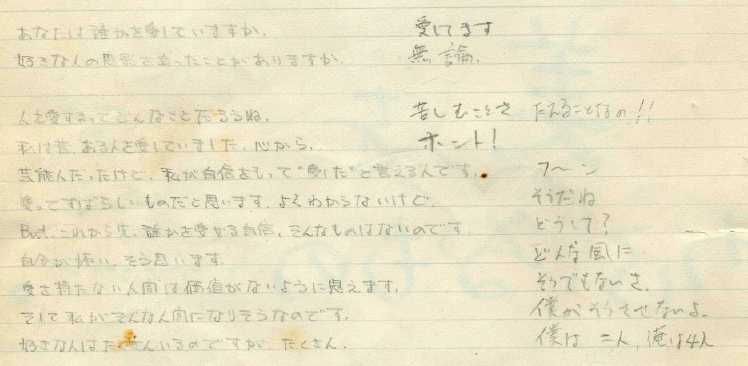 あなたは誰かを愛していますか。 愛してます
好きな人の思影を追ったことがありますか。 無論。
人を愛するってどんなことだろうね。 苦しむことさ たえることなの!!
私は昔、ある人を愛していました。心から。 ホント!
芸能人だったけど、私が自信をもって"愛した"と言える人です。 フ〜ン
愛ってすばらしいものだと思います。よくわからないけど。 そうだね
But、これから先、誰かを愛せる自信、そんなものはないのです。 どうして?
自分が怖い。そう思います。 どんな風に
愛を持たない人間は価値がないように思えます。 そうでもないさ。
そして私がそんな人間になりそうなのです。 僕がそうさせないよ。
好きな人はたくさんいるのですが、たくさん。 僕は二人、俺は4人